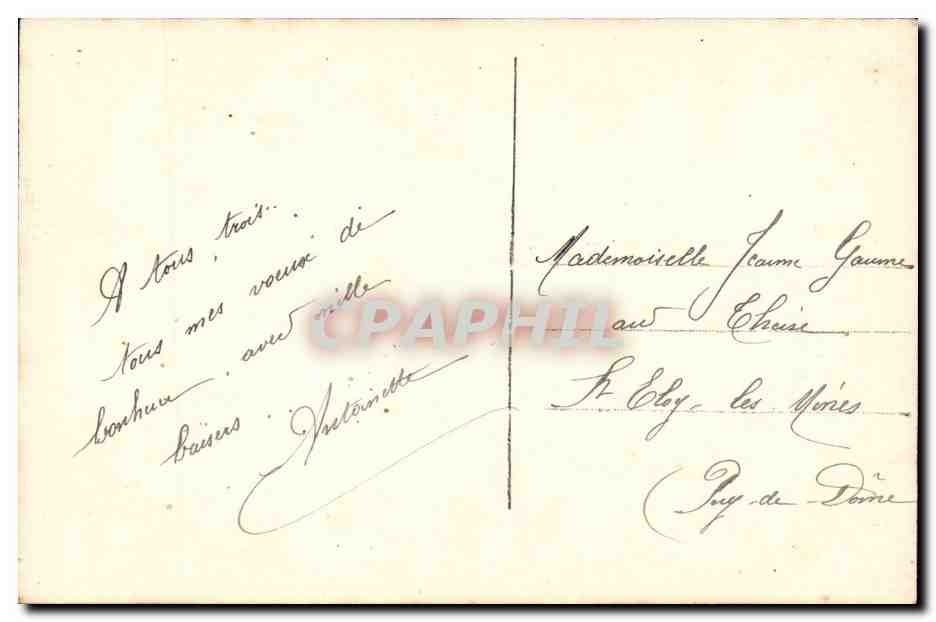 A tous, trois..
tous mes voeux de
bonheur, avec mille
baisers.
Antoinette
Mademoiselle Jeanne Gaume
au
St Eloy-les Mines
(Puy-de-Dôme
CPAPHIL